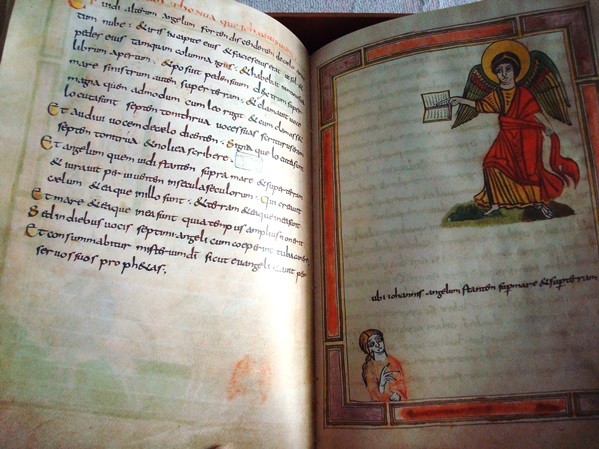 uidi alterum angelum fortem discendentem de celo
nube : & iris in capite eius & facies eius erat ut sol &
pedes eius tamquam columna ignis : & habebat in manu
librum apertum : & posuit pedem suum super
mare sinistrum autem super terram : & clamauit uoce
magna quem admodum cum leo rugit & cum clamasset
locuta sunt septem tonithrua uoces suas
Et audiui uocem de celo dicentem : Signa que locuta sunt
septem tonithrua & noli ea scribere .
Et angelum quem uidi stantem supra mare & super terram
& iurauit per uiuentem in secula seculorum . Qui creauit
caelum & ea que in illo sunt : & terram & ea que in ea sunt
Et mare & ea que in ea sunt quia tempus amplius non erit
Sed in diebus uocis septimi angeli cum coeperit tuba canere
Et consummabitur misterium di sicut euangeli per
seruos suos proph&as .
ubi iohannis angelum stantem sup mare & sup terram